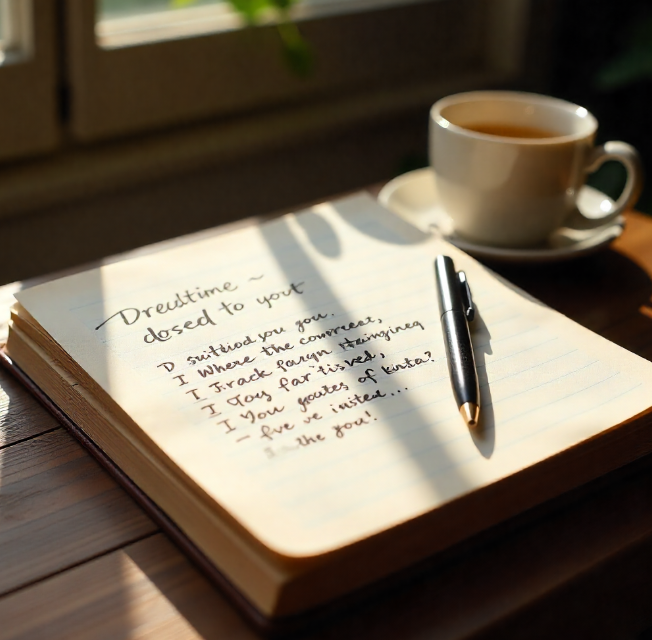 Dreultime ~
dosed to yout
D suitiod you gou.
I Where the convereet,
I Jirack fargn Haingineg
I Toys far tisved,
I You goutes of kinta?
– five ve insted...
the you!